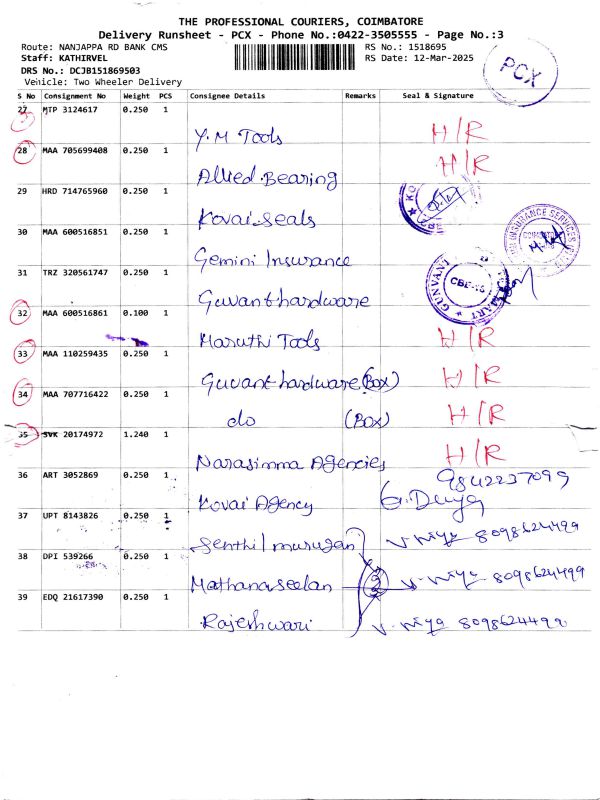 THE PROFESSIONAL COURIERS, COIMBATORE
Delivery Runsheet - PCX - Phone No.:0422-3505555 - Page No.:3
Route: NANJAPPA RD BANK CMS RS No.: 1518695
Staff: KATHIRVEL RS Date: 12-Mar-2025
PCX
DRS No.: DCJB151869503
Vehicle: Two Wheeler Delivery
S No Consignment No Weight PCS Consignee Details Remarks Seal & Signature
27 MTP 3124617 0.250 1
Y.M Tools H/R
28 MAA 705699408 0.250 1
Allied Bearing H/R
29 HRD 714765960 0.250 1
Kovai seals
30 MAA 600516851 0.250 1
Gemini Insurance
31 TRZ 320561747 0.250 1
Guvant hardware
32 MAA 600516861 0.100 1
Maruthi Tools H/R
33 MAA 110259435 0.250 1
Guvant hardware (Box) H/R
34 MAA 707716422 0.250 1
do (Box) H/R
35 SVK 20174972 1.240 1
Narasimma Agencies H/R
36 ART 3052869 0.250 1 9842237099
Kovai Agency
37 UPT 8143826 0.250 1
Senthil murugan 8098624499
38 DPI 539266 0.250 1
Mathanaseelan 8098624499
39 EDQ 21617390 0.250 1
Rajeshwari 8098624499